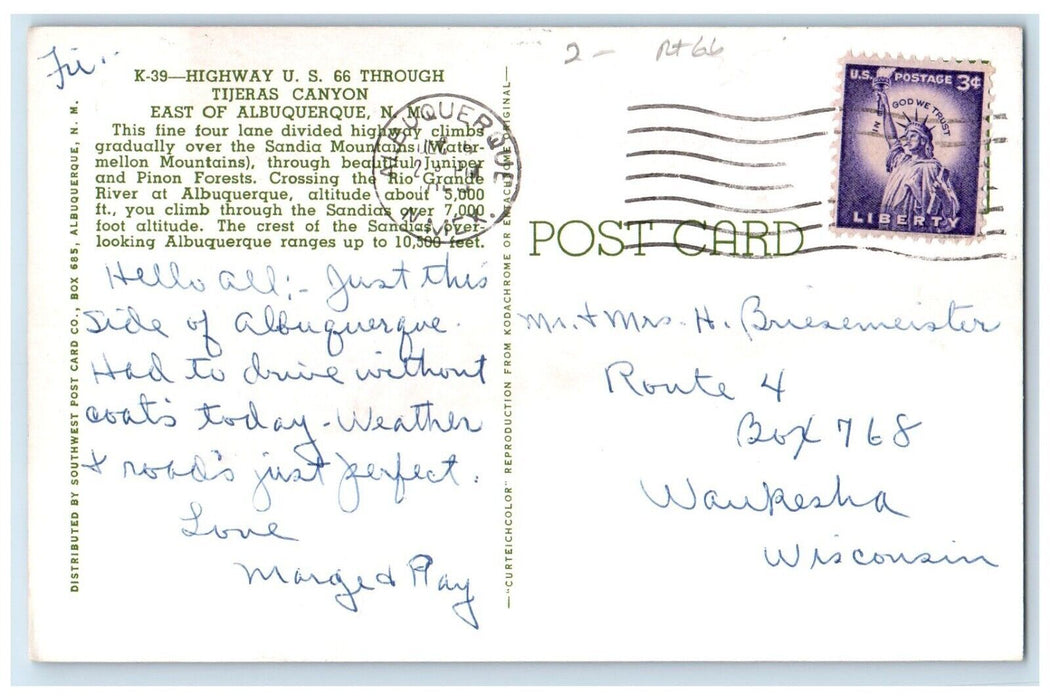 Fri.
K-39—HIGHWAY U. S. 66 THROUGH
TIJERAS CANYON
EAST OF ALBUQUERQUE, N. M.
This fine four lane divided highway climbs
gradually over the Sandia Mountains (Water-
mellon Mountains), through beautiful Juniper
and Pinon Forests. Crossing the Rio Grande
River at Albuquerque, altitude about 5,000
ft., you climb through the Sandias over 7,000
foot altitude. The crest of the Sandias over-
looking Albuquerque ranges up to 10,500 feet.
Hello all:- Just this
side of Albuquerque.
Had to drive without
coats today - Weather
& road's just perfect.
Love
Marge & Ray
DISTRIBUTED BY SOUTHWEST POST CARD CO., BOX 685, ALBUQUERQUE, N. M.
—"CURTEICHCOLOR" REPRODUCTION FROM KODACHROME OR EKTACHROME ORIGINAL—
2 - Rt 66
ALBUQUERQUE
N. MEX.
U.S. POSTAGE 3¢
IN GOD WE TRUST
LIBERTY
POST CARD
Mr. & Mrs. H. Briesemeister
Route 4
Box 768
Waukesha
Wisconsin